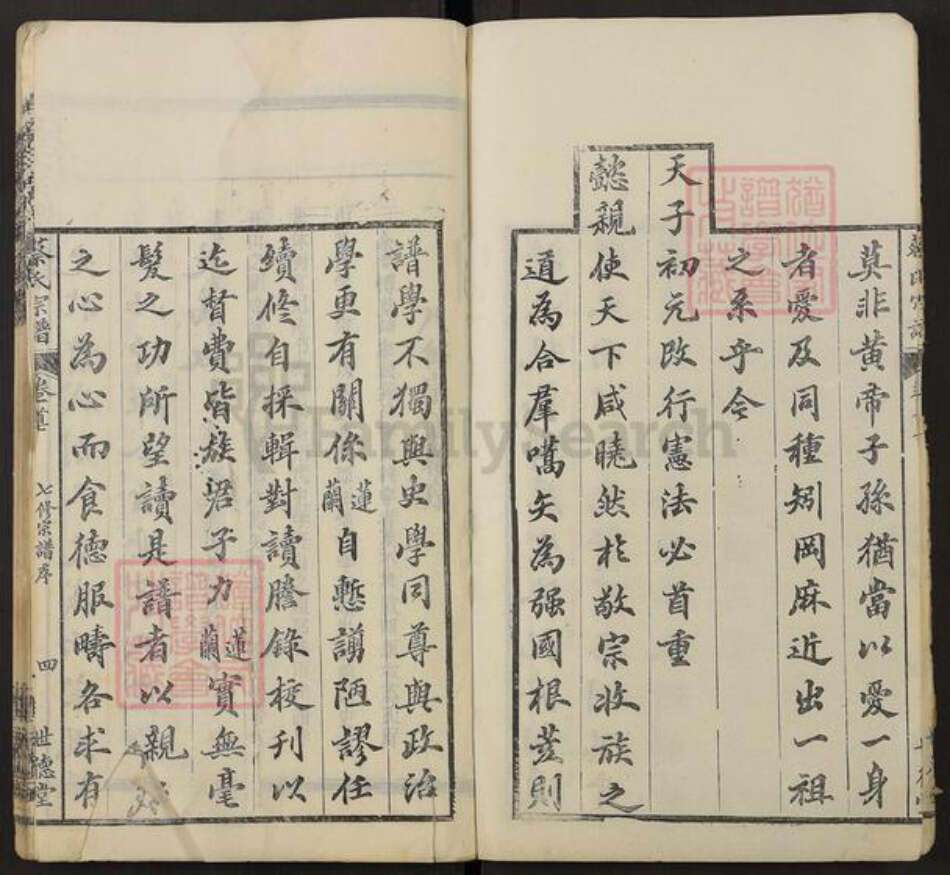 莫非黃帝子孫猶當以愛一身
者愛及同種矧岡麻近出一祖
之系乎今
天子初元改行憲法必首重
懿親使天下咸曉然於敬宗收族之
道為合羣嚆矢為强國根荄則
譜學不獨與史學同尊與政治
學更有關係蓮蘭自慙謭陋謬任
續修自採輯對讀謄錄校刊以
迄督費皆族君子力蓮蘭實無毫
髮之功所望讀是譜者以親
之心為心而食德服疇各求有
蔡氏宗譜 卷首 七修宗譜序 四 世德堂
FamilySearch